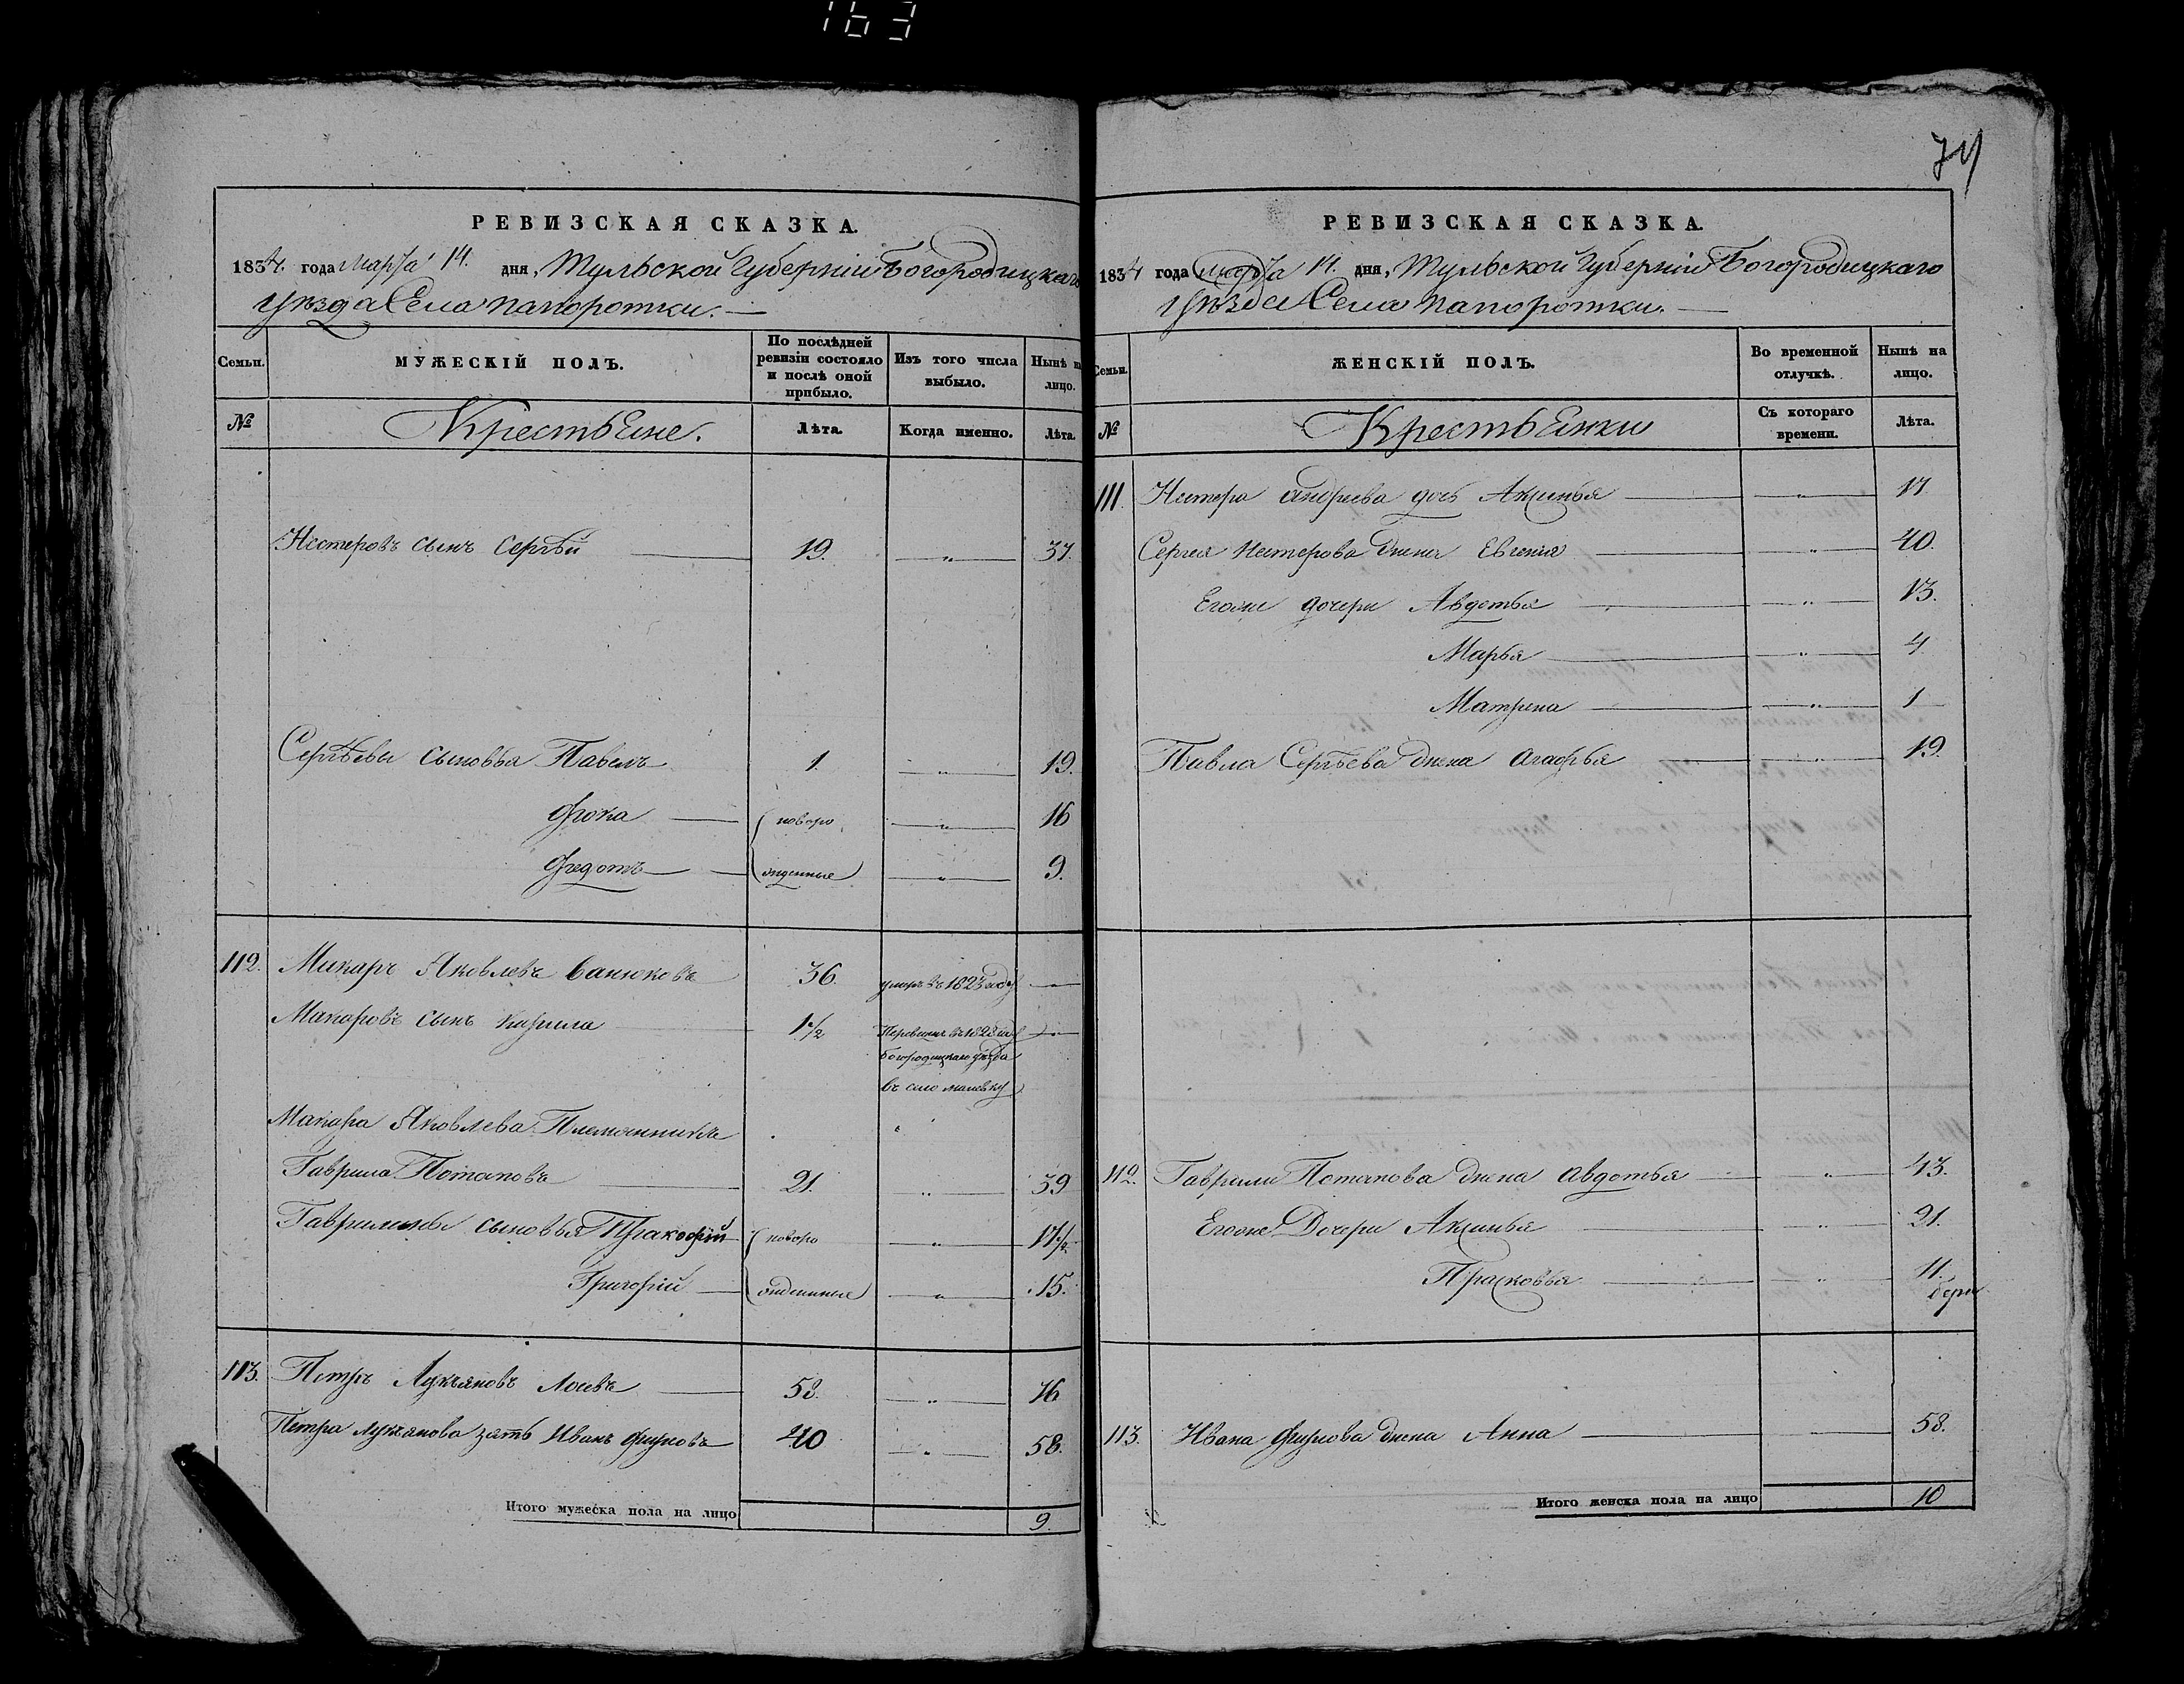 163
74
РЕВИЗСКАЯ СКАЗКА.
1834. года марта 14. дня, Тульской Губерніи Богородицкаго
уѣзда Села папоротки.
Семьи. МУЖЕСКІЙ ПОЛЪ. По послѣдней ревизіи состояло и послѣ оной прибыло. Изъ того числа выбыло. Нынѣ на лицо.
№ Крестьяне. Лѣта. Когда именно. Лѣта.
Нестеровъ сынъ Сергѣй 19. „ 37.
Сергѣевы сыновья Павелъ 1. „ 19.
Фока новоро „ 16
Федотъ жденные „ 9.
112. Макаръ Яковлевъ Санюковъ 36. умеръ въ 1823 году
Макаровъ сынъ Кирила 1 1/2 Перевиденъ въ 1828 год
Богородицкаго уѣзда
въ село малевку
Макара Яковлева Племянникъ
Гаврила Потаповъ 21. „ 39
Гаврилины сыновья Пракофій новоро „ 17 1/2
Григорій жденные „ 15.
113. Петръ Лукъяновъ Лосевъ 58. „ 76
Петра Лукъянова зять Иванъ Фирсовъ 40 „ 58.
Итого мужеска пола на лицо 9.
РЕВИЗСКАЯ СКАЗКА.
1834 года марта 14. дня, Тульской Губерніи Богородицкаго
уѣзда Села папоротки.
Семьи. ЖЕНСКІЙ ПОЛЪ. Во временной отлучкѣ. Нынѣ на лицо.
№ Крестьянки Съ котораго времени. Лѣта.
111. Нестера Андреева дочь Аксинья „ 17
Сергея Нестерова жена Евгения „ 40.
Егоже дочери Авдотья „ 13.
Марья „ 4
Матрена „ 1
Павла Сергѣева жена Агафья „ 19.
112. Гаврилы Потапова жена Авдотья „ 43.
Егоже Дочери Аксинья „ 21.
Прасковья „ 11.
113. Ивана Фирсова жена Анна 58.
Итого женска пола на лицо 10